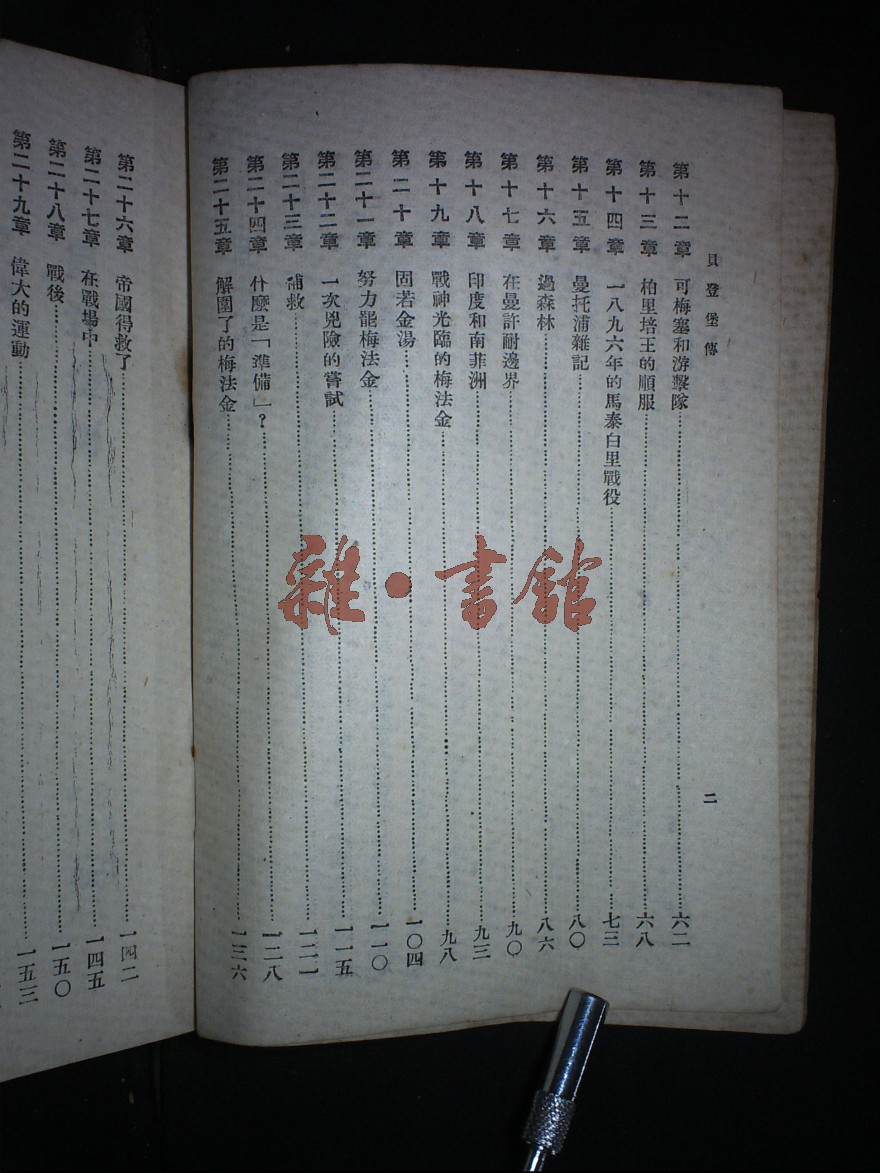 貝登堡傳
二
第十二章 可梅塞和游擊隊……六二
第十三章 柏里培王的順服……六八
第十四章 一八九六年的馬泰白里戰役……七三
第十五章 曼托浦雜記……八〇
第十六章 過森林……八六
第十七章 在曼許耐邊界……九〇
第十八章 印度和南菲洲……九三
第十九章 戰神光臨的梅法金……九八
第二十章 固若金湯……一〇四
第二十一章 努力罷梅法金……一一〇
第二十二章 一次兇險的嘗試……一一五
第二十三章 補救……一二一
第二十四章 什麼是「準備」？……一二八
第二十五章 解圍了的梅法金……一三六
第二十六章 帝國得救了……一四二
第二十七章 在戰場中……一四五
第二十八章 戰後……一五〇
第二十九章 偉大的運動……一五三
雜·書館